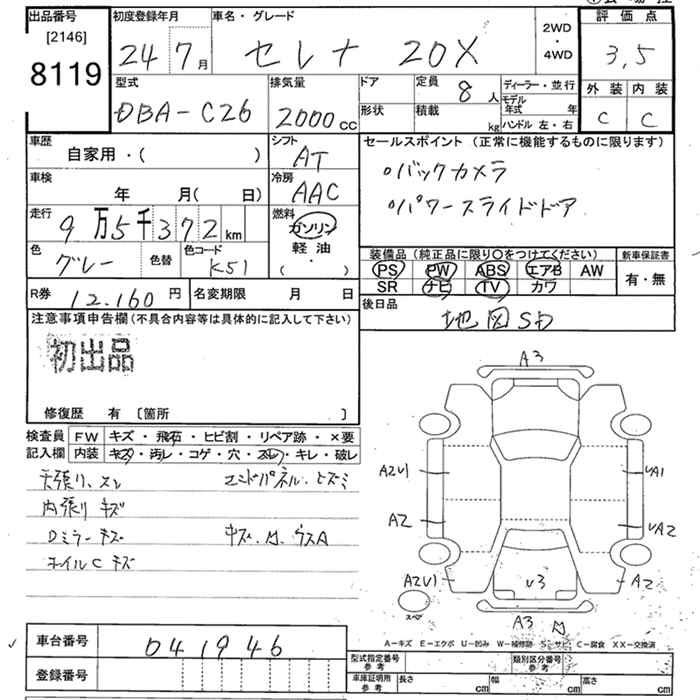 出品番号
[2146]
8119
初度登録年月
24 7月
車名・グレード
セレナ 20X
2WD
・
4WD
評価点
3,5
外装 内装
C C
型式
DBA-C26
排気量
2000cc
ドア
形状
定員
8人
積載
kg
ディーラー・並行
モデル年式 年
ハンドル 左・右
車歴
自家用・( )
シフト
AT
セールスポイント (正常に機能するものに限ります)
○バックカメラ
○パワースライドドア
車検
年 月( 日)
冷房
AAC
走行
9万5千372km
燃料
ガソリン
軽油
( ・ )
色
グレー
色替
色コード
K51
装備品 (純正品に限り○をつけてください)
PS PW ABS エアB AW
SR ナビ TV カワ
新車保証書
有・無
R券
12,160円
名変期限 月 日
後日品
地図SD
注意事項申告欄(不具合内容等は具体的に記入して下さい)
初出品
修復歴 有 [箇所 ]
検査員記入欄
FW キズ・飛石・ヒビ割・リペア跡・×要
内装 キズ・汚レ・コゲ・穴・スレ・キレ・破レ
天張り、スレ
内張り キズ
Dミラー キズ
ホイルC キズ
エンドパネル、ヒズミ
キズ、凹、ウスA
A3
A2U1
UA1
A2
UA2
A2U1
U3
A2
スペア
A3
凹
A-キズ E-エクボ U-凹み W-補修跡 S-サビ C-腐食 XX-交換済
車台番号
041946
登録番号
型式指定番号
参考
類別区分番号
参考
車庫証明用
参考
長さ cm
幅 cm
高さ cm